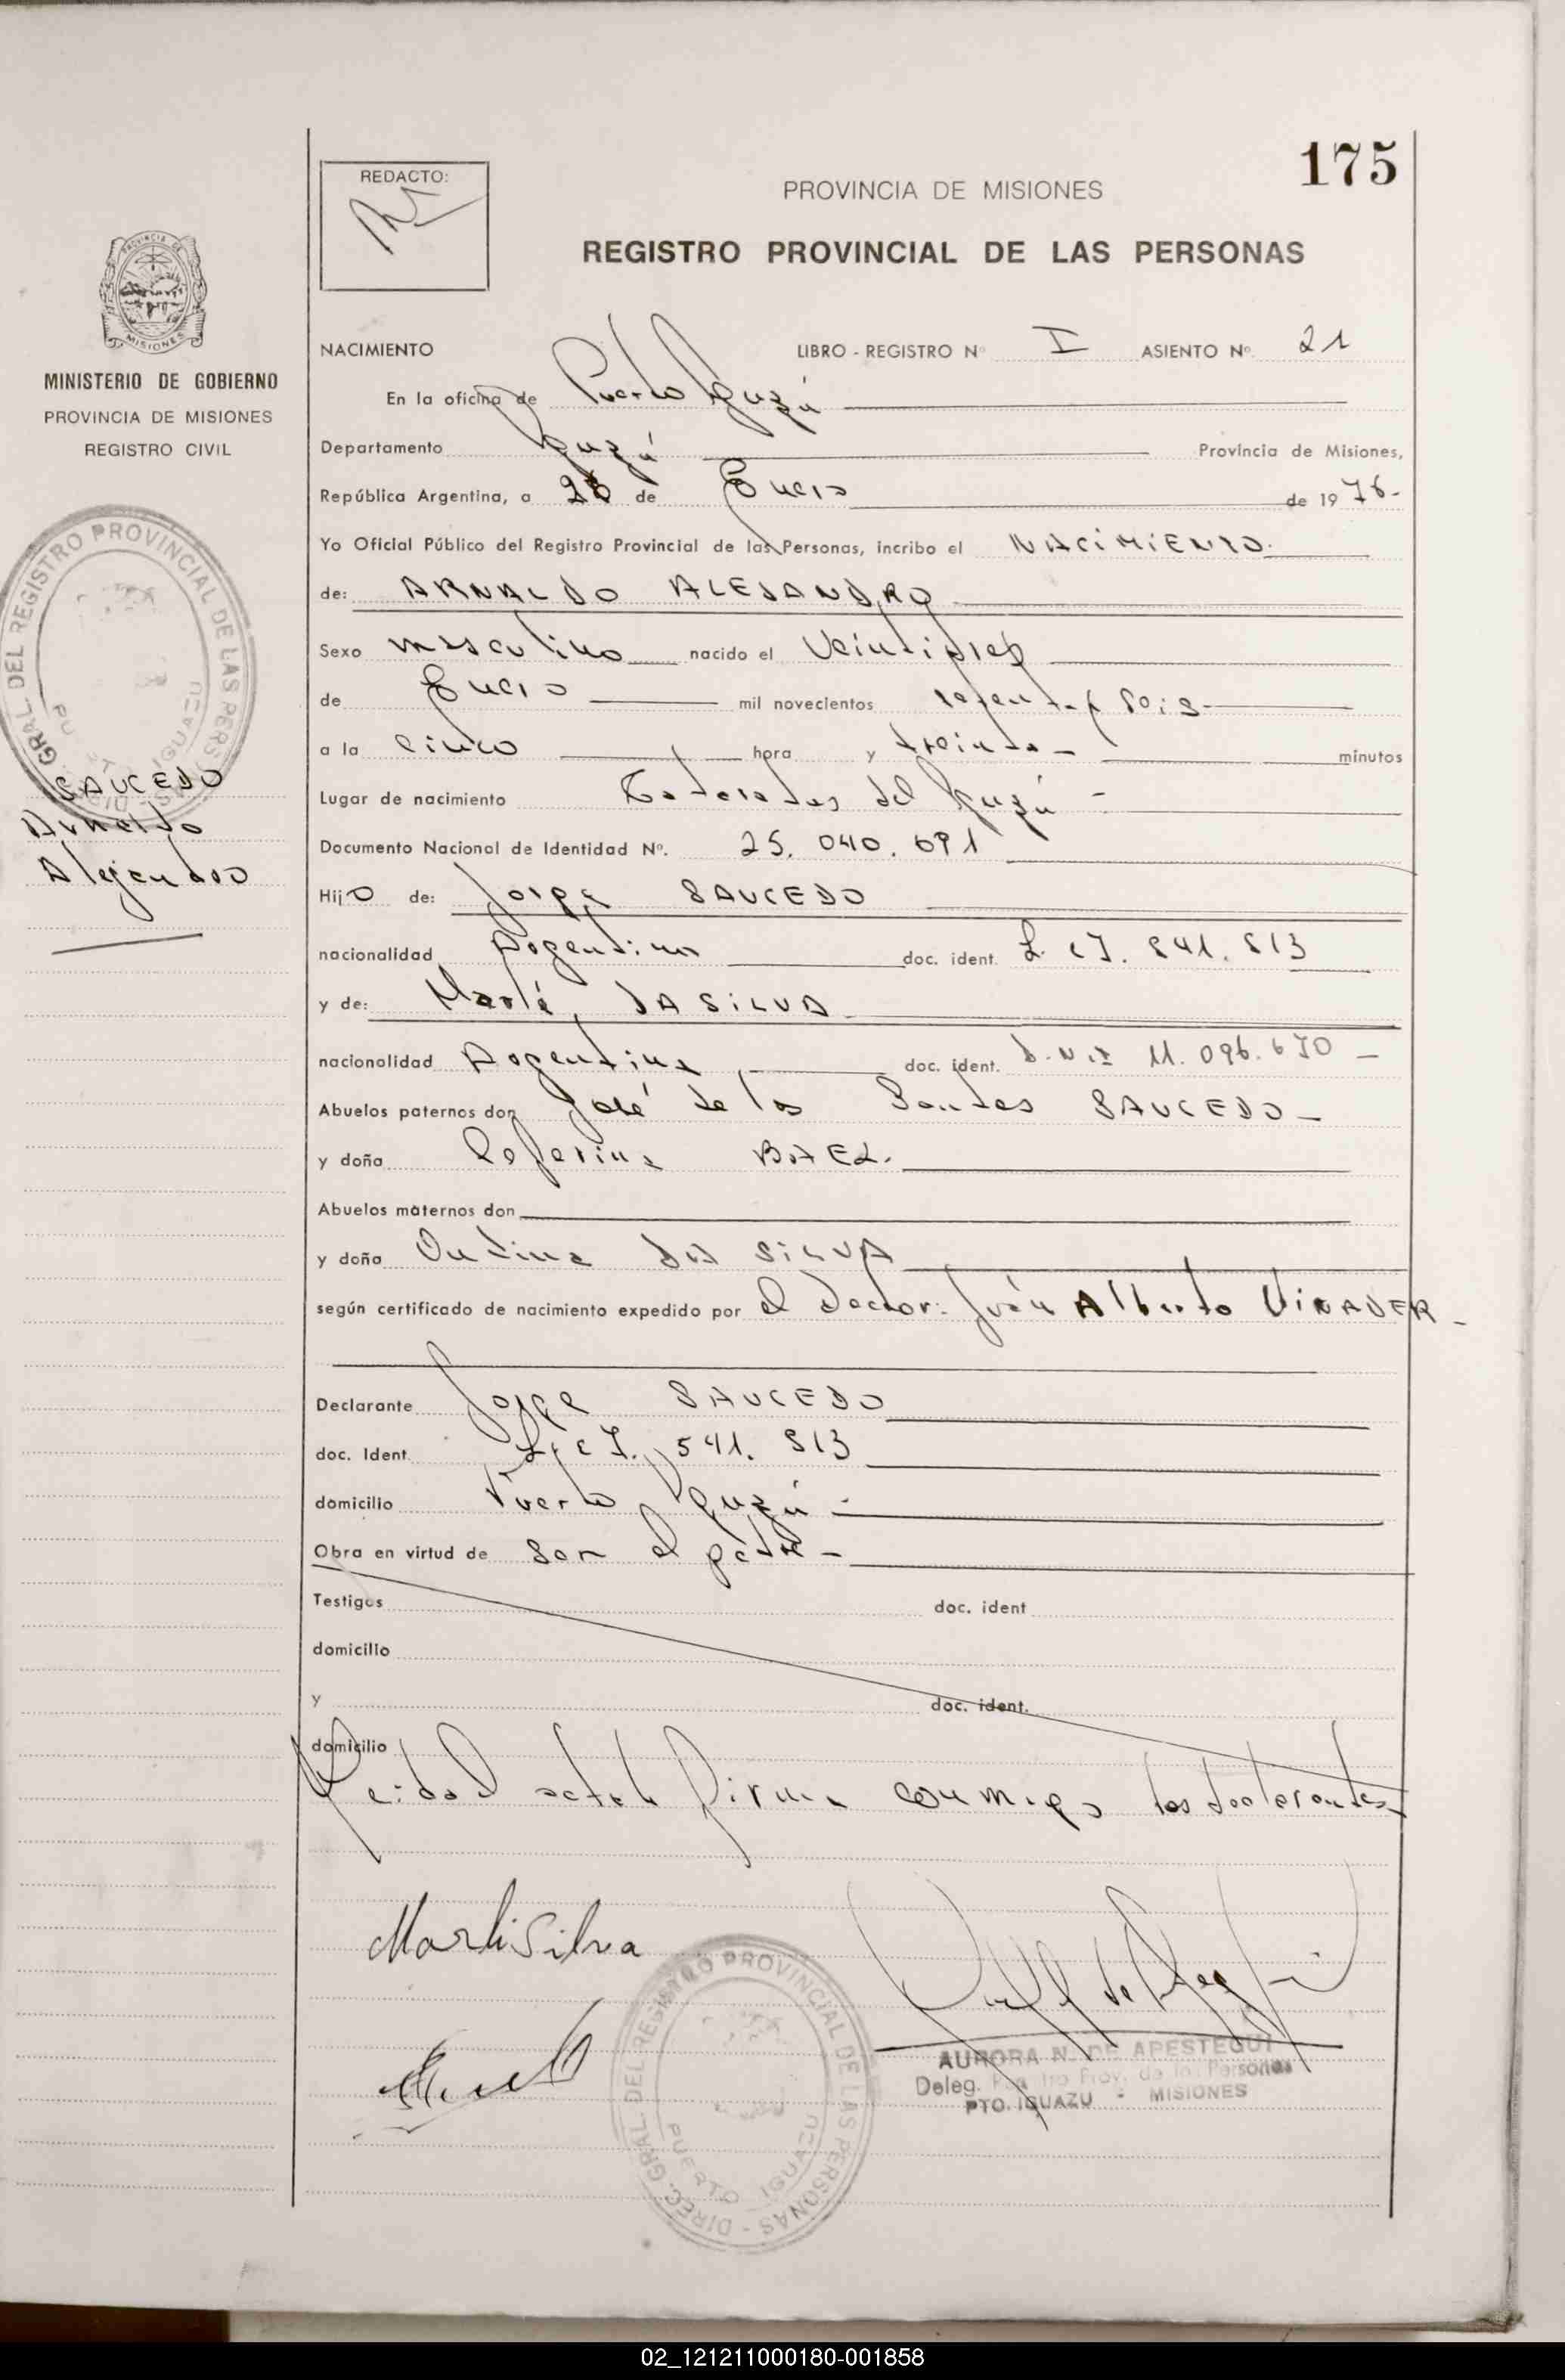 175
REDACTO:
PROVINCIA DE MISIONES
REGISTRO PROVINCIAL DE LAS PERSONAS
PROVINCIA DE
MISIONES
MINISTERIO DE GOBIERNO
PROVINCIA DE MISIONES
REGISTRO CIVIL
GRAL. DEL REGISTRO PROVINCIAL DE LAS PERS
SAUCEDO
Arnaldo
Alejandro
NACIMIENTO LIBRO - REGISTRO Nº I ASIENTO Nº 21
En la oficina de Puerto Iguazú
Departamento Iguazú Provincia de Misiones,
República Argentina, a 28 de Enero de 1976-
Yo Oficial Público del Registro Provincial de las Personas, incribo el NACIMIENTO.
de: ARNALDO ALEJANDRO
Sexo masculino nacido el Veintitres
de Enero mil novecientos setenta y seis-
a la cinco hora y treinta - minutos
Lugar de nacimiento Cataratas del Iguazú -
Documento Nacional de Identidad Nº. 25.040.691
Hijo de: Jorge SAUCEDO
nacionalidad Argentino doc. ident.
y de: Marlé DA SILVA
nacionalidad Argentina doc. ident. D.N.I. 11.096.670 -
Abuelos paternos don José de los Santos SAUCEDO -
y doña Ceferina BAEZ.
Abuelos maternos don
y doña Ondina DA SILVA
según certificado de nacimiento expedido por el Doctor: Juán Alberto VINADER -
Declarante Jorge SAUCEDO
doc. Ident. 541. 813
domicilio Puerto Iguazú -
Obra en virtud de Ser el padre -
Testigos doc. ident
domicilio
y doc. ident.
domicilio
Leida el acta firma conmigo los declarantes
Marli Silva
AURORA N. DE APESTEGUI
Deleg. Reg tro Prov. de las Personas
PTO. IGUAZU - MISIONES
DIREC. GRAL. DEL REGISTRO PROVINCIAL DE LAS PERSONAS -
PUERTO IGUAZU
02_121211000180-001858